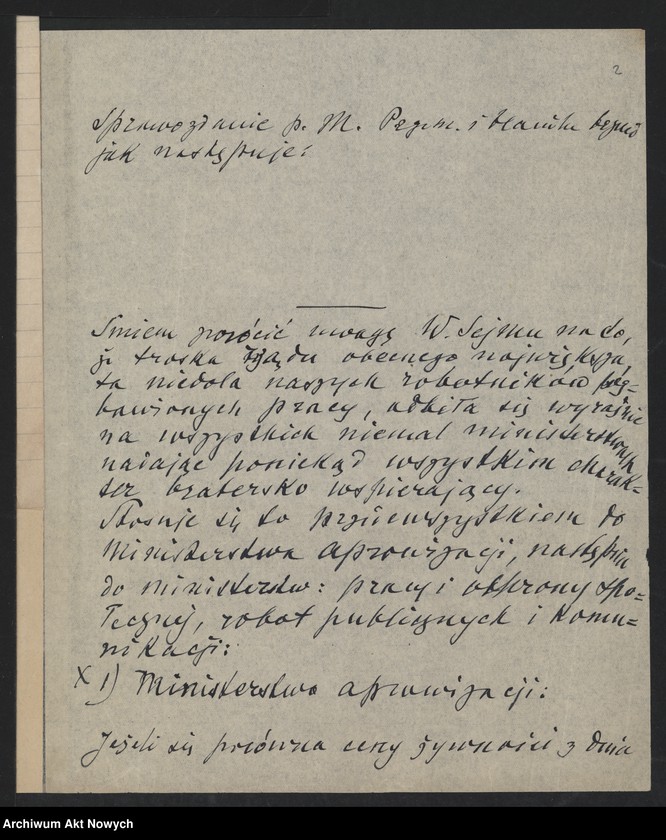 2
Sprawozdanie p. M. Przem. i Handlu
jak następuje:
Śmiem zwrócić uwagę W. Sejmu na to,
że troska rządu obecnego największa,
ta niedola naszych robotników poz-
bawionych pracy, odbiła się wyraźnie
na wszystkich niemal ministerstwach
nadając poniekąd wszystkim charak-
ter bratersko wspierający.
Stosuje się to przedewszystkiem do
Ministerstwa aprowizacji, następnie
do ministerstw: pracy i ochrony spo-
łecznej, robot publicznych i komu-
nikacji:
x 1) Ministerstwo aprowizacji:
Jeżeli się porówna ceny żywności z dnia
Archiwum Akt Nowych